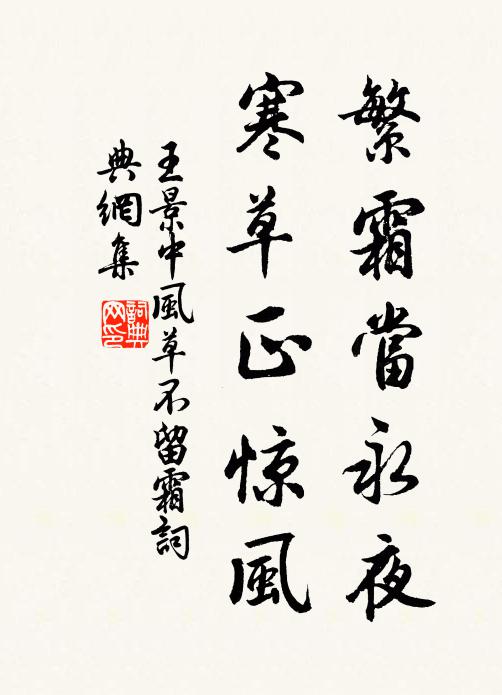 繁霜當永夜
寒草正惊風
王景中風草不留霜詞
典網集
詞典
网印